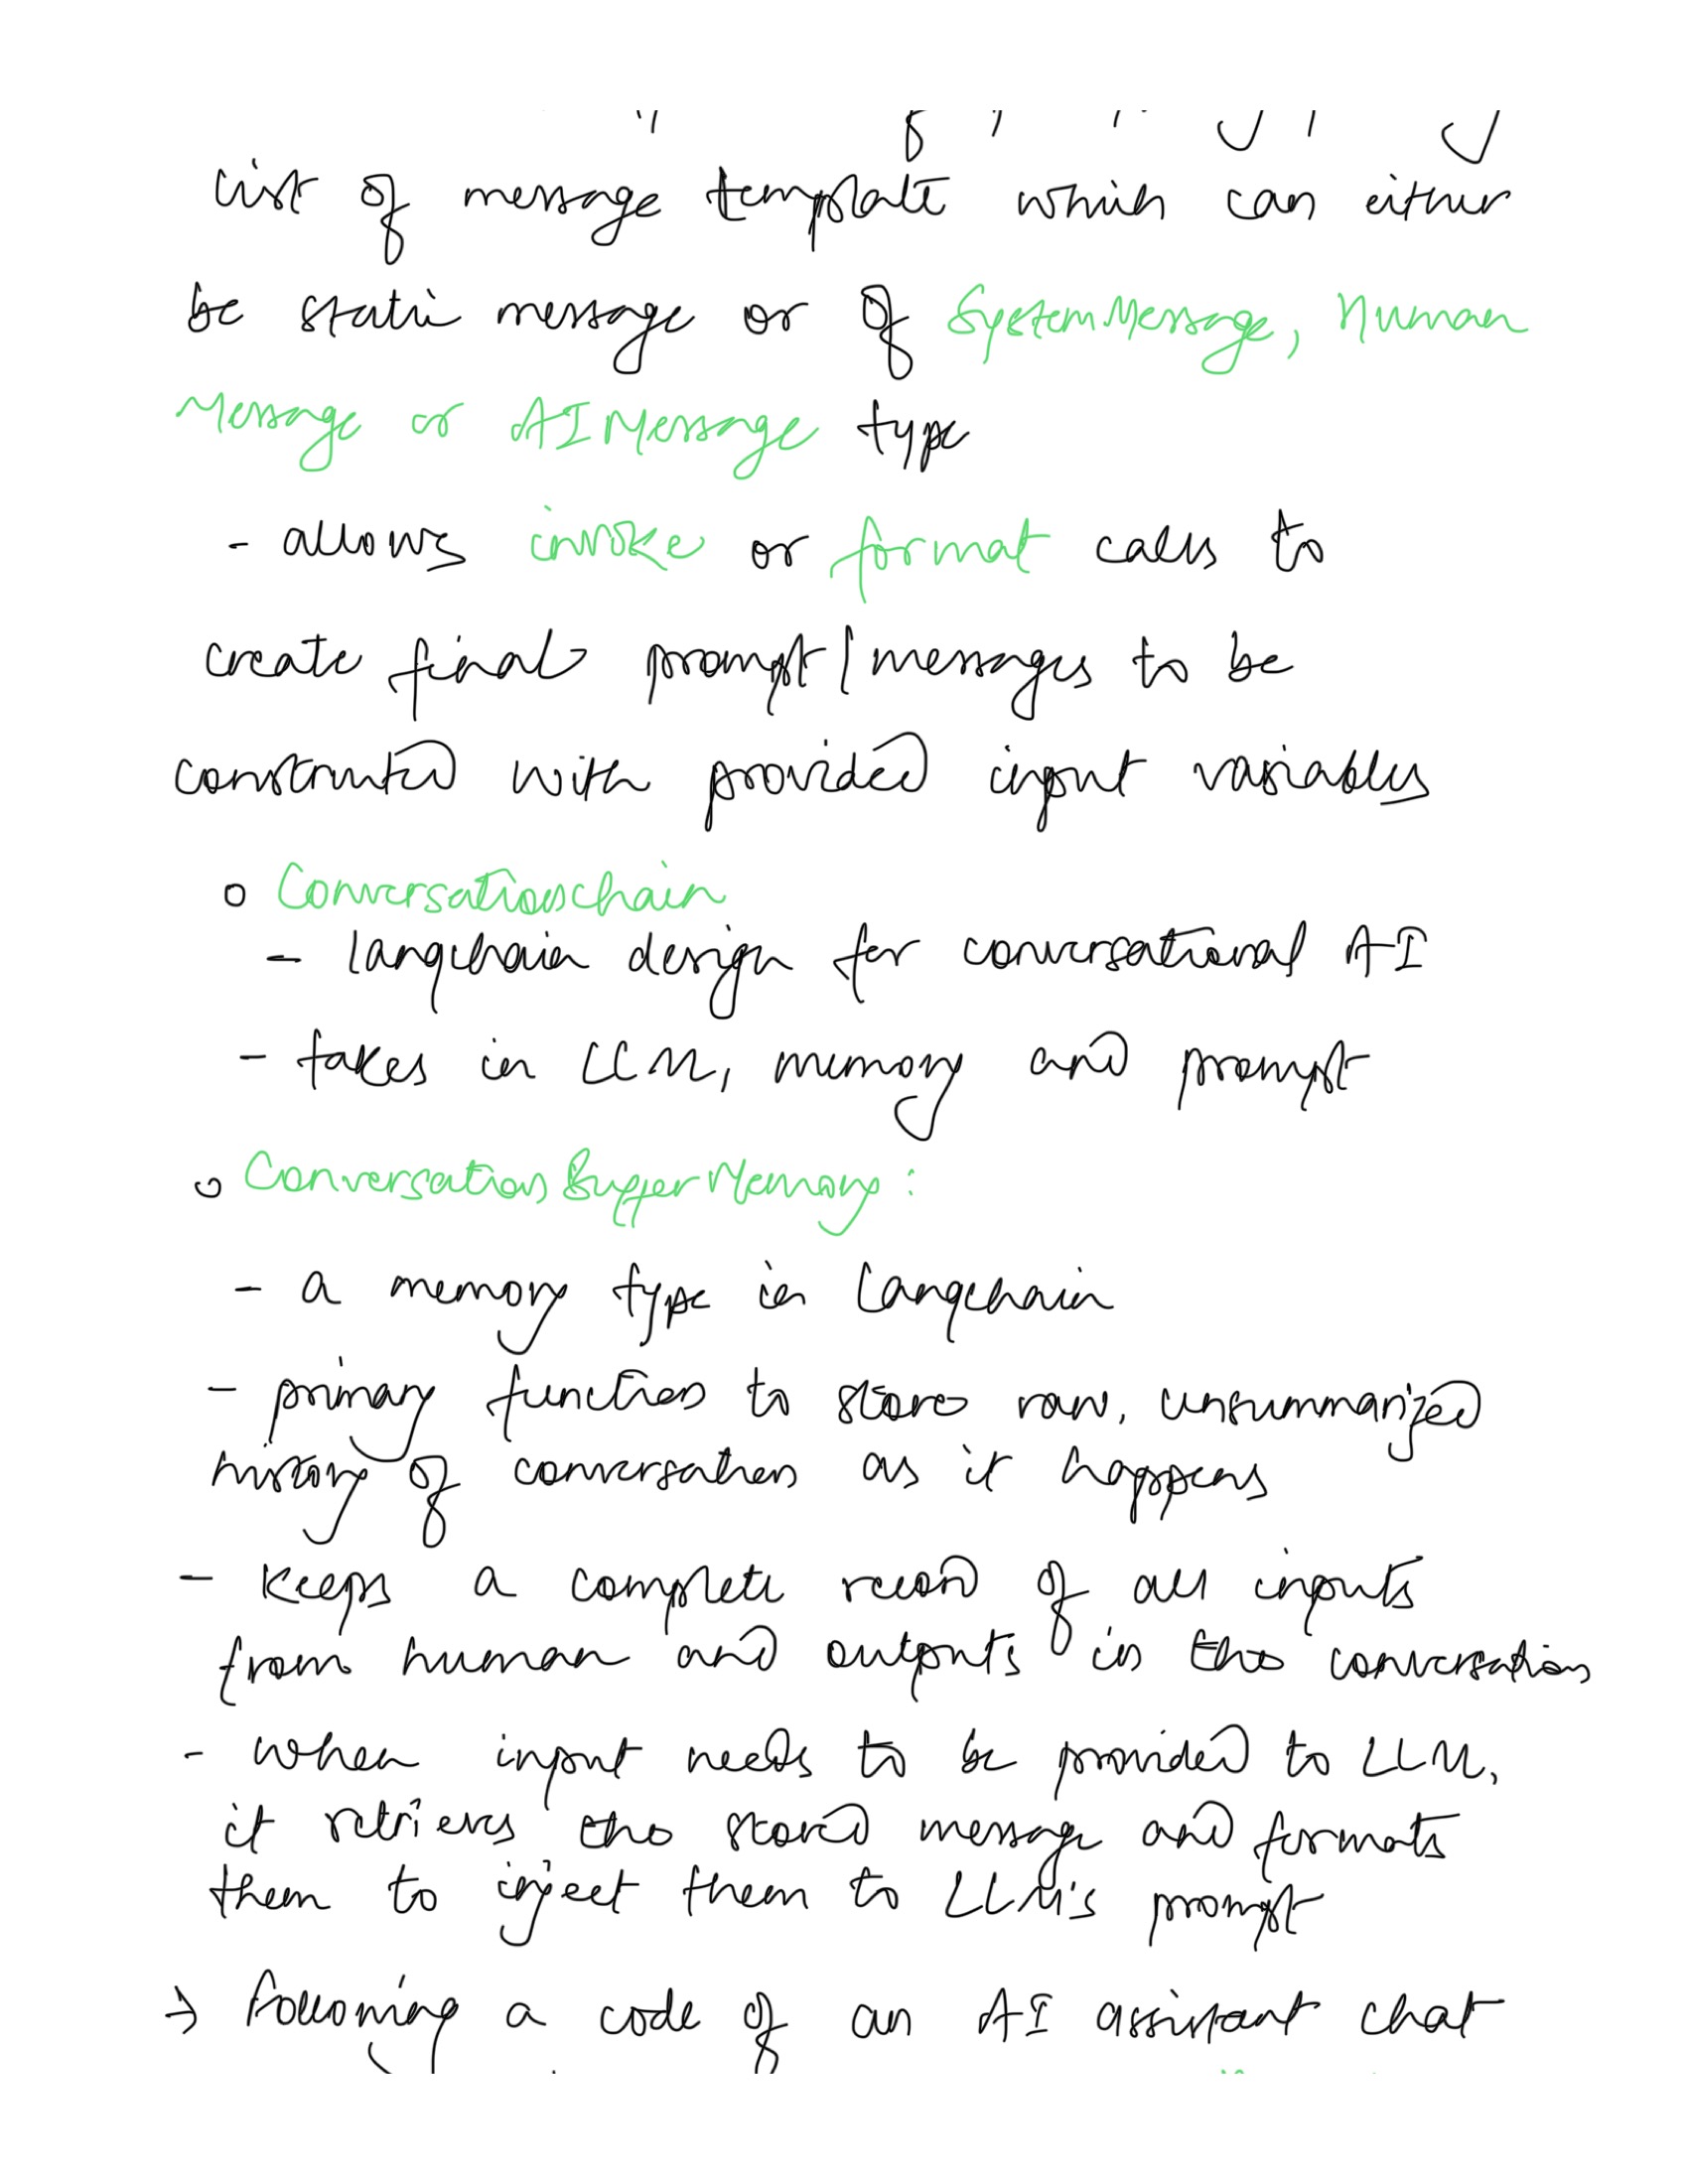 list of message template which can either
be static message or of SystemMessage, Human
Message or AIMessage type
- allows invoke or format calls to
create final prompt/messages to be
constructed with provided input variables
○ Conversationchain
- langchain design for conversational AI
- takes in LLM, memory and prompt
○ ConversationBufferMemory:
- a memory type in Langchain
- primary function to store raw, unsummarized
history of conversation as it happens
- keeps a complete record of all inputs
from human and outputs in the conversation
- when input needs to be provided to LLM,
it retrieves the stored message and formats
them to inject them to LLM's prompt
→ Following a code of an AI assistant chat